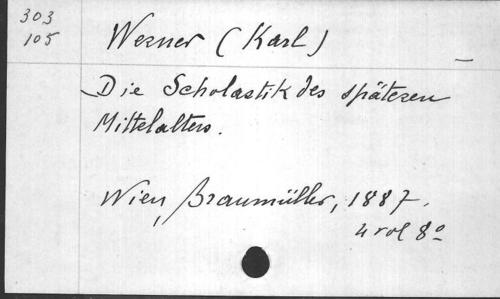 303
105
Werner (Karl)
Die Scholastik des späteren
Mittelalters.
Wien, Braumüller, 1887.
4 vol 8º